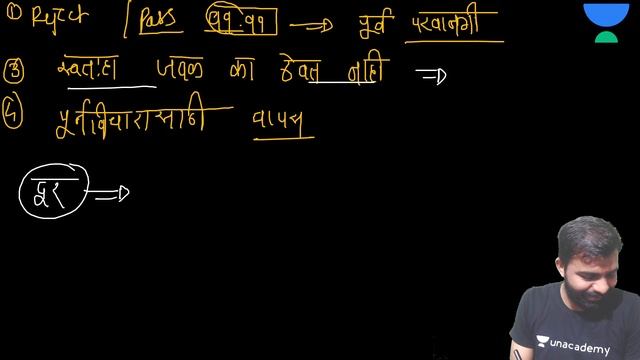 ① Reject / Pass ९९.९९ → पूर्व परवानगी
③ स्वतःहा जवळ का ठेवत नाही ⇒
④ पूर्नविचारासाठी वापस
दूर ⇒
unacademy